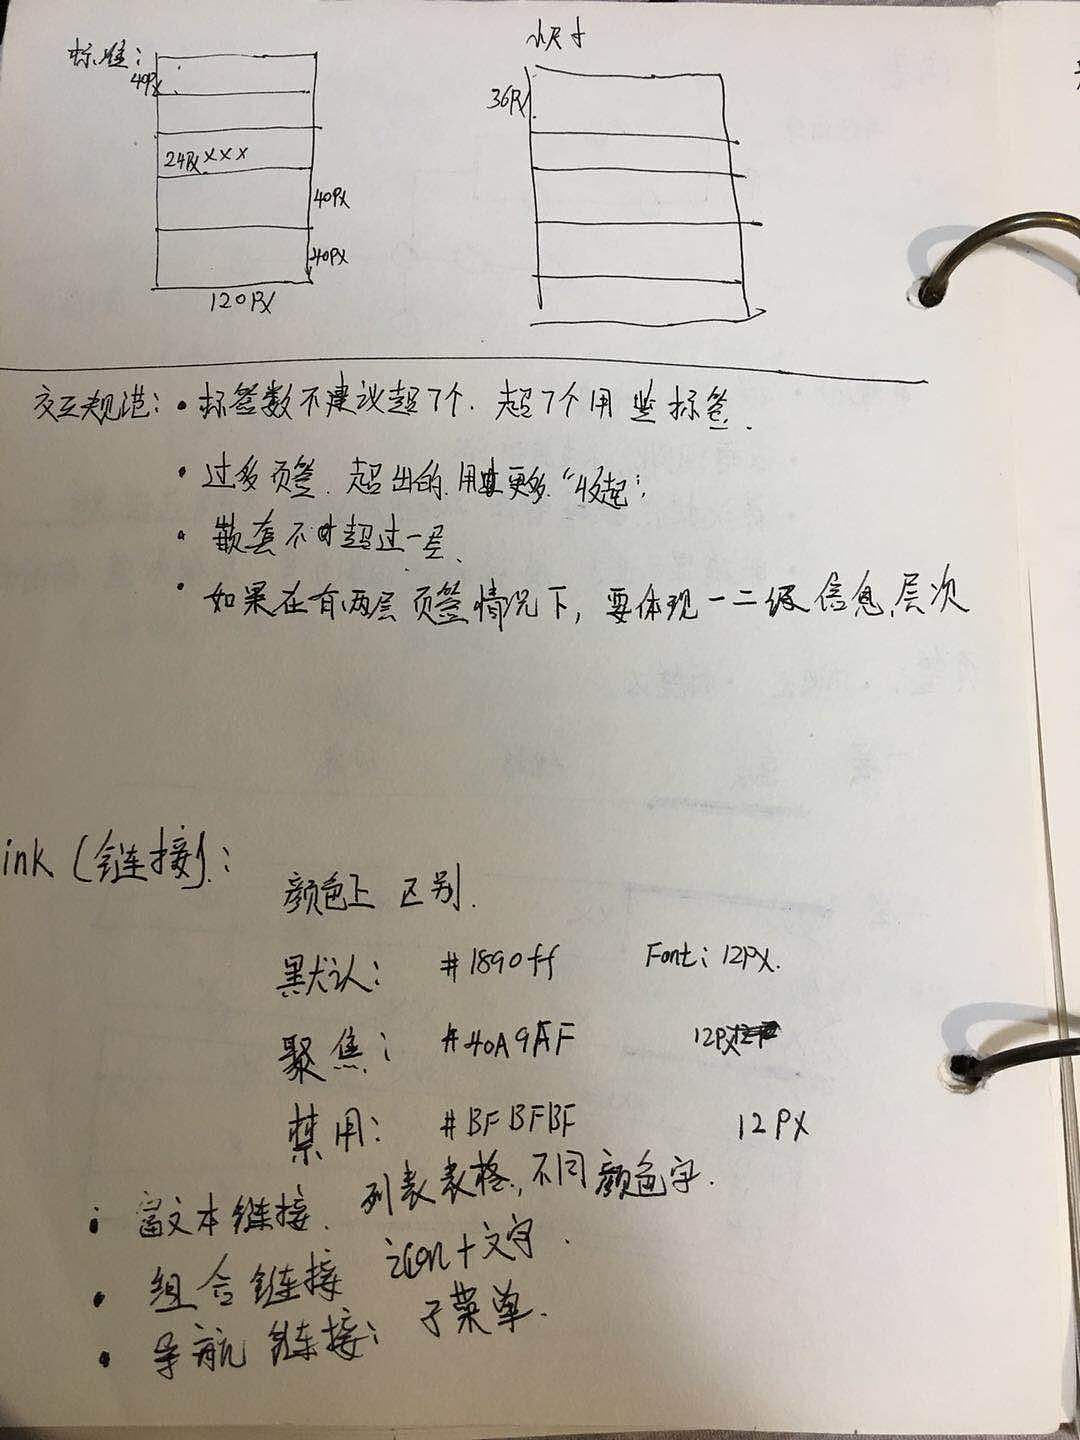 标准:
40PX
24PX XXX
40PX
40PX
120PX
小尺寸
36PX
交互规范: • 标签数不建议超7个. 超7个用竖标签.
• 过多页签. 超出的. 用更多. "收起";
• 嵌套不时超过一层.
• 如果在有两层页签情况下, 要体现一二级信息层次
ink (链接):
颜色上 区别.
默认: #1890ff Font: 12PX.
聚焦: #40A9AF 12PX
禁用: #BFBFBF 12PX
• 富文本链接. 列表表格, 不同颜色字.
• 组合链接 icon+文字.
• 导航链接: 子菜单.